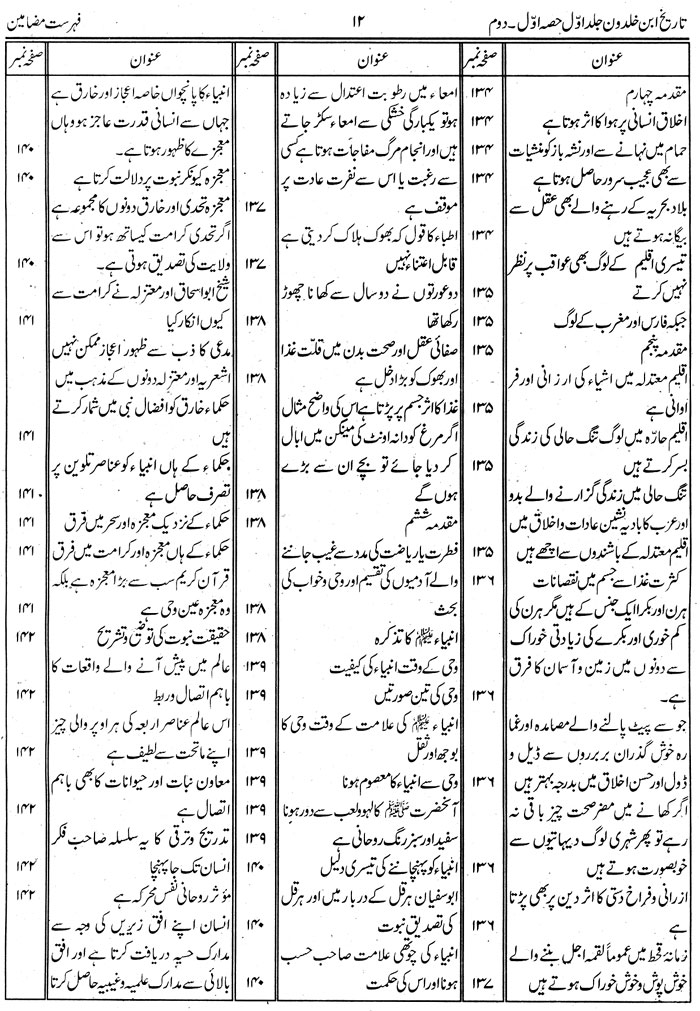 تاریخ ابن خلدون جلد اوّل حصہ اوّل ۔ دوم ۱۲ فہرست مضامین
عنوان صفحہ نمبر
مقدمہ چہارم ۱۳۴
اخلاق انسانی پر ہوا کا اثر ہوتا ہے ۱۳۴
حمام میں نہانے سے اور نشہ باز کو منشیات ۱۳۴
سے بھی عجیب سرور حاصل ہوتا ہے
بلاد بحریہ کے رہنے والے بھی عقل سے
بیگانہ ہوتے ہیں ۱۳۴
تیسری اقلیم کے لوگ بھی عواقب پر نظر
نہیں کرتے ۱۳۵
جبکہ فارس اور مغرب کے لوگ ۱۳۵
مقدمہ پنجم ۱۳۵
اقلیم معتدلہ میں اشیاء کی ارزانی اور فر
اوانی ہے ۱۳۵
اقلیم حارّہ میں لوگ تنگ حالی کی زندگی
بسر کرتے ہیں ۱۳۵
تنگ حالی میں زندگی گزارنے والے بدو
اور عرب کا بادیہ نشین عادات و اخلاق میں
اقلیم معتدلہ کے باشندوں سے اچھے ہیں ۱۳۵
کثرت غذا سے جسم میں نقصانات ۱۳۶
ہرن اور بکرا ایک جنس کے ہیں مگر ہرن کی
کم خوری اور بکرے کی زیادتی خوراک
سے دونوں میں زمین و آسمان کا فرق
ہے۔ ۱۳۶
جو سے پیٹ پالنے والے مصامدہ اور غما
رہ خوش گذران بربروں سے ڈیل و
ڈول اور حسن اخلاق میں بدرجہ بہتر ہیں ۱۳۶
اگر کھانے میں مضر صحت چیز باقی نہ
رہے تو پھر شہری لوگ دیہاتیوں سے
خوبصورت ہوتے ہیں ۱۳۶
ارزانی و فراخ دستی کا اثر دین پر بھی پڑتا
ہے ۱۳۶
زمانۂ قحط میں عموماً لقمہ اجل بننے والے
خوش پوش و خوش خوراک ہوتے ہیں ۱۳۷
عنوان صفحہ نمبر
امعاء میں رطوبت اعتدال سے زیادہ
ہو تو یکبارگی خشکی سے امعاء سکڑ جاتے
ہیں اور انجام مرگ مفاجات ہوتا ہے کسی
سے رغبت یا اس سے نفرت عادت پر
موقف ہے ۱۳۷
اطباء کا قول کہ بھوک ہلاک کر دیتی ہے
قابل اعتناء نہیں ۱۳۷
دو عورتوں نے دو سال سے کھانا چھوڑ
رکھا تھا ۱۳۸
صفائی عقل اور صحت بدن میں قلّت غذا
اور بھوک کو بڑا دخل ہے ۱۳۸
غذا کا اثر جسم پر پڑتا ہے اس کی واضح مثال
اگر مرغ کو دانہ اونٹ کی مینگن میں ابال
کر دیا جائے تو بچے ان سے بڑے
ہوں گے ۱۳۸
مقدمہ ششم ۱۳۸
فطرت یا ریاضت کی مدد سے غیب جاننے
والے آدمیوں کی تقسیم اور وحی و خواب کی
بحث ۱۳۸
انبیاء ﷺ کا تذکرہ ۱۳۸
وحی کے وقت انبیاء کی کیفیت ۱۳۹
وحی کی تین صورتیں ۱۳۹
انبیاء ﷺ کی علامت کے وقت وحی کا
بوجھ اور ثقل ۱۳۹
وحی سے انبیاء کا معصوم ہونا ۱۳۹
آنحضرت ﷺ کا لہو و لعب سے دور ہونا ۱۳۹
سفید اور سبز رنگ روحانی ہے ۱۳۹
انبیاء کو پہچاننے کی تیسری دلیل ۱۴۰
ابو سفیان ہرقل کے دربار میں اور ہرقل
کی تصدیق نبوت ۱۴۰
انبیاء کی چوتھی علامت صاحب حسب
ہونا اور اس کی حکمت ۱۴۰
عنوان صفحہ نمبر
انبیاء کا پانچواں خاصہ اعجاز اور خارق ہے
جہاں سے انسانی قدرت عاجز ہو وہاں
معجزے کا ظہور ہوتا ہے۔ ۱۴۰
معجزہ کیونکر نبوت پر دلالت کرتا ہے ۱۴۰
معجزہ تحدی اور خارق دونوں کا مجموعہ ہے
اگر تحدی کرامت کیساتھ ہو تو اس سے
ولایت کی تصدیق ہوتی ہے۔ ۱۴۰
شیخ ابو اسحاق اور معتزلہ نے کرامت سے
کیوں انکار کیا ۱۴۱
مدعی کاذب سے ظہور اعجاز ممکن نہیں
اشعریہ اور معتزلہ دونوں کے مذہب میں
حکماء خارق کو افضال نبی میں شمار کرتے
ہیں ۱۴۱
حکماء کے ہاں انبیاء کو عناصر تلوین پر
تصرف حاصل ہے ۱۴۱
حکماء کے نزدیک معجزہ اور سحر میں فرق ۱۴۱
حکماء کے ہاں معجزہ اور کرامت میں فرق ۱۴۱
قرآن کریم سب سے بڑا معجزہ ہے بلکہ
وہ معجزہ عین وحی ہے ۱۴۱
حقیقت نبوت کی توضیح و تشریح ۱۴۲
عالم میں پیش آنے والے واقعات کا
باہم اتصال و ربط ۱۴۲
اس عالم عناصر اربعہ کی ہر اوپر والی چیز
اپنے ماتحت سے لطیف ہے ۱۴۲
معاون نبات اور حیوانات کا بھی باہم
اتصال ہے ۱۴۲
تدریج و ترقی کا یہ سلسلہ صاحب فکر
انسان تک جا پہنچا ۱۴۲
مؤثر روحانی نفس محرکہ ہے ۱۴۲
انسان اپنے افق زیریں کی وجہ سے
مدارک حسیہ دریافت کرتا ہے اور افق
بالائی سے مدارک علمیہ و غیبیہ حاصل کرتا